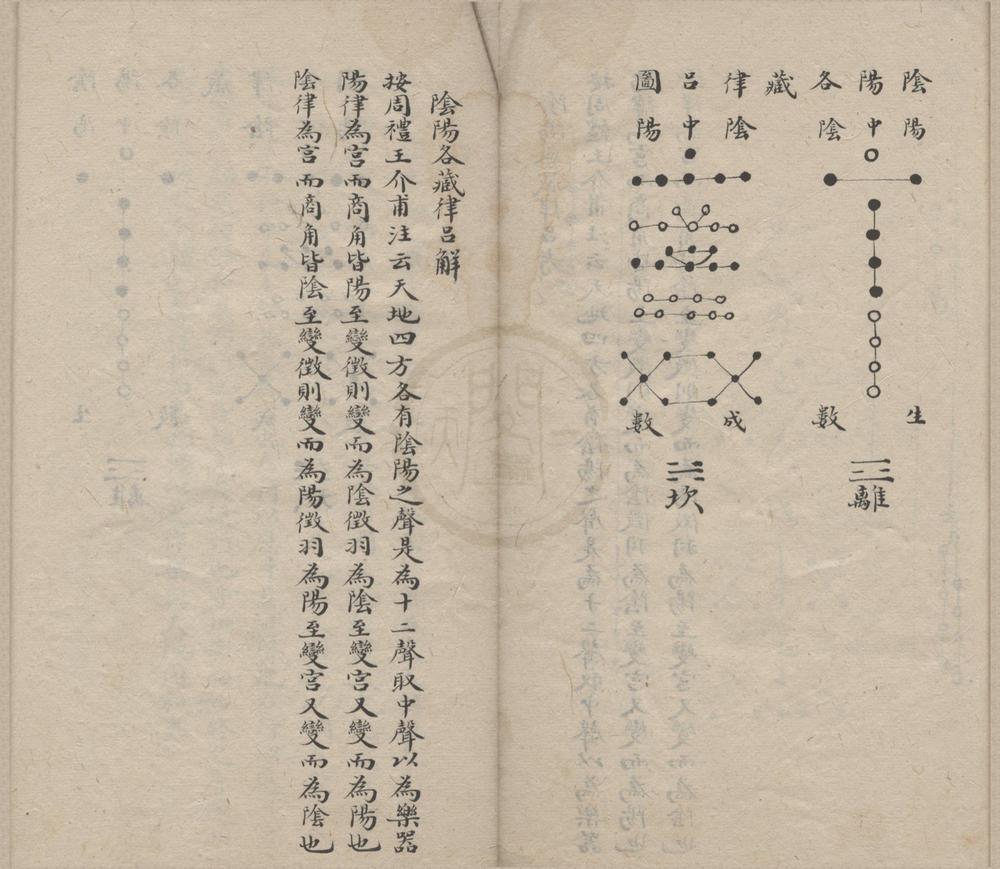 陰陽各藏律呂圖
陽中陰
陰中陽
生數
成數
☲離
☵坎
陰陽各藏律呂解
按周禮王介甫注云天地四方各有陰陽之聲是為十二聲取中聲以為樂器
陽律為宮而商角皆陽至變徵則變而為陰徵羽為陰至變宮又變而為陽也
陰律為宮而商角皆陰至變徵則變而為陽徵羽為陽至變宮又變而為陰也